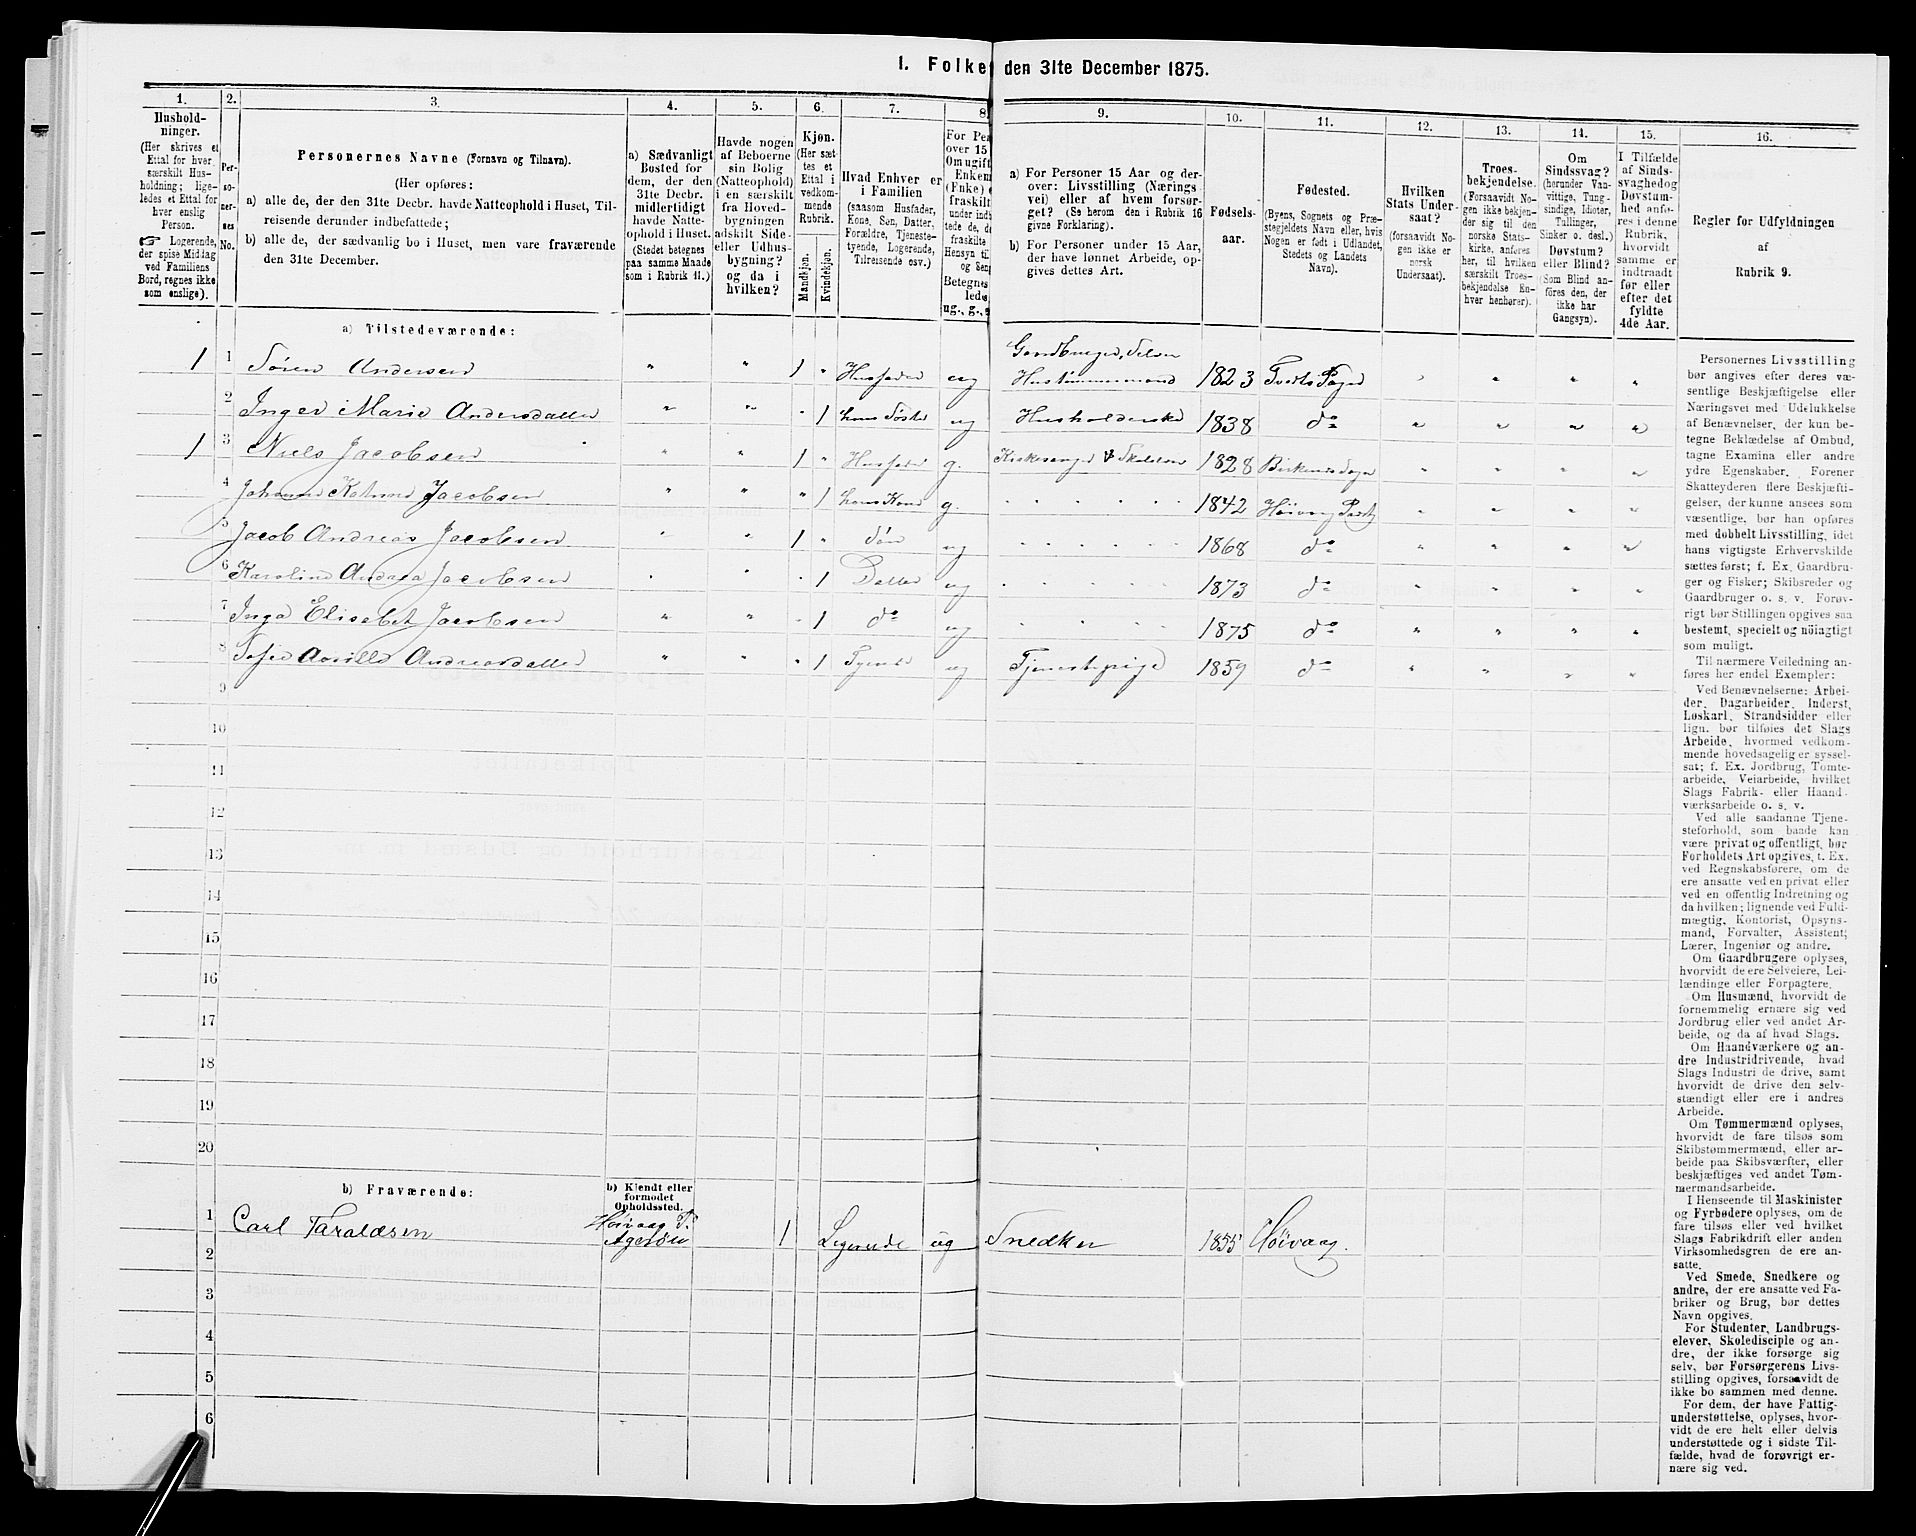 1. Folke den 31te December 1875.
1. 2. 3. 4. 5. 6. 7. 8. 9. 10. 11. 12. 13. 14. 15. 16.
Hushold-
ninger.
(Her skrives et
Ettal for hver
særskilt Hus-
holdning; lige-
ledes et Ettal for
hver enslig
Person.
☞ Logerende,
der spise Middag
ved Familiens
Bord, regnes ikke
som enslige).
Per-
so-
ner-
nes
No.
Personernes Navne (Fornavn og Tilnavn).
(Her opføres:
a) alle de, der den 31te Decbr. havde Natteophold i Huset, Til-
reisende derunder indbefattede;
b) alle de, der sædvanlig bo i Huset, men vare fraværende
den 31te December.
a) Sædvanligt
Bosted for
dem, der den
31te Decbr.
midlertidigt
havde Natte-
ophold i Huset.
(Stedet betegnes
paa samme Maade
som i Rubrik 11.)
Havde nogen
af Beboerne
sin Bolig
(Natteophold)
i en særskilt
fra Hoved-
bygningen
adskilt Side-
eller Udhus-
bygning?
og da i
hvilken?
Kjøn.
(Her sæt-
tes et
Ettal i
vedkom-
mende
Rubrik.
Mandkjøn.
Kvindekjøn.
Hvad Enhver er
i Familien
(saasom Husfader,
Kone, Søn, Datter,
Forældre, Tjeneste-
tyende, Logerende,
Tilreisende osv.)
For Pe
over 15
Om ugift
Enkem
(Fnke) e
fraskilt
under ind
tede de, d
fraskilte
Hensyn t
og Sen
Betegnes
lede
ug., g., e
a) For Personer 15 Aar og der-
over: Livsstilling (Nærings-
vei) eller af hvem forsør-
get? (Se herom den i Rubrik 16
givne Forklaring).
b) For Personer under 15 Aar,
der have lønnet Arbeide, op-
gives dettes Art.
Fødsels-
aar.
Fødested.
(Byens, Sognets og Præ-
stegjeldets Navn eller, hvis
Nogen er født i Udlandet,
Stedets og Landets
Navn).
Hvilken
Stats Under-
saat?
(forsaavidt No-
gen ikke er
norsk
Undersaat).
Troes-
bekjendelse.
(Forsaavidt No-
gen ikke bekjen-
der sig til den
norske Stats-
kirke, anføres
her, til hvilken
særskilt Troes-
bekjendelse En-
hver henhører).
Om
Sindssvag?
(herunder Van-
vittige, Tung-
sindige, Idioter,
Tullinger,
Sinker o. desl.)
Døvstum?
eller Blind?
(Som Blind an-
føres den, der
ikke har
Gangsyn).
I Tilfælde
af Sinds-
svaghedog
Døvstum-
hed anfø-
res i denne
Rubrik,
hvorvidt
samme er
indtraadt
før eller
efter det
fyldte
4de Aar.
Regler for Udfyldningen
af
Rubrik 9.
a) Tilstedeværende:
1 1 Søren Andersen " " 1 " Husfader ug Gaardbruger, Selveier Hustømmermand 1823 Tveits Pgd " " " "
2 Inger Marie Andersdatter " " " 1 hans Søster ug Husholderske 1838 do " " " "
1 3 Niels Jacobsen " " 1 " Husfader g. Kirkesanger & Skolelærer 1828 Birkenes Sogn " " " "
4 Johanne Katrine Jacobsen " " " 1 hans Kone g. 1842 Høivaag Præstg " " " "
5 Jacob Andreas Jacobsen " " 1 " Søn ug 1868 do " " " "
6 Karoline Andrea Jacobsen " " " 1 Datter ug 1873 do " " " "
7 Inga Elisabet Jacobsen " " " 1 do ug 1875 do " " " "
8 Sofie Andreasdatter " " " 1 Tyende ug Tjenestepige 1859 do " " " "
9
10
11
12
13
14
15
16
17
18
19
20
b) Fraværende:
b) Kjendt eller
formodet
Opholdssted.
1 Carl Taraldsen Høivaag P. Agerøen 1 Logerende ug Snedker 1855 Høivaag.
2
3
4
5
6
Personernes Livsstilling
bør angives efter deres væ-
sentlige Beskjæftigelse eller
Næringsvei med Udelukkelse
af Benævnelser, der kun be-
tegne Beklædelse af Ombud,
tagne Examina eller andre
ydre Egenskaber. Forener
Skatteyderen flere Beskjæfti-
gelser, der kunne ansees som
væsentlige, bør han opføres
med dobbelt Livsstilling, idet
hans vigtigste Erhvervskilde
sættes først; f. Ex. Gaardbru-
ger og Fisker; Skibsreder og
Gaardbruger o. s. v. Forøv-
rigt bør Stillingen opgives saa
bestemt, specielt og nöiagtigt
som muligt.
Til nærmere Veiledning an-
føres her endel Exempler:
Ved Benævnelserne: Arbei-
der, Dagarbeider, Inderst,
Løskarl, Strandsidder eller
lign. bør tilføies det Slags
Arbeide, hvormed vedkom-
mende hovedsagelig er syssel-
sat; f. Ex. Jordbrug, Tomte-
arbeide, Veiarbeide, hvilket
Slags Fabrik- eller Haand-
værksarbeide o. s. v.
Ved alle saadanne Tjene-
steforhold, som baade kan
være privat og offentligt, bør
Forholdets Art opgives, t. Ex.
ved Regnskabsførere, om de
ere ansatte ved en privat eller
ved en offentlig Indretning og
da hvilken; lignende ved Fuld-
mægtig, Kontorist, Opsyns-
mand, Forvalter, Assistent;
Lærer, Ingeniør og andre.
Om Gaardbrugere oplyses,
hvorvidt de ere Selveiere, Lei-
lændinge eller Forpagtere.
Om Husmænd, hvorvidt de
fornemmelig ernære sig ved
Jordbrug eller ved andet Ar-
beide, og da af hvad Slags.
Om Haandværkere og an-
dre Industridrivende, hvad
Slags Industri de drive, samt
hvorvidt de drive den selv-
stændigt eller ere i andres
Arbeide.
Om Tømmermænd oplyses,
hvorvidt de fare tilsøs som
Skibstømmermænd, eller ar-
beide paa Skibsværfter, eller
beskjæftiges ved andet Tøm-
mermandsarbeide.
I Henseende til Maskinister
og Fyrbødere oplyses, om de
fare tilsøs eller ved hvilket
Slags Fabrikdrift eller anden
Virksomhedsgren de ere an-
satte.
Ved Smede, Snedkere og
andre, der ere ansatte ved Fa-
briker og Brug, bør dettes
Navn opgives.
For Studenter, Landbrugs-
elever, Skoledisciple og an-
dre, der ikke forsørge sig
selv, bør Forsørgerens Livs-
stilling opgives, forsaavidt de
ikke bo sammen med denne.
For dem, der have Fattig-
understøttelse, oplyses, hvor-
vidt de ere helt eller delvis
understøttede og i sidste Til-
fælde, hvad de forøvrigt er-
nære sig ved.